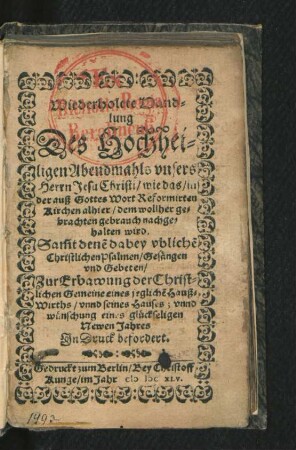 Wiederholete Hand-
lung
Des Hochhei-
ligen Abendmahls vnsers
Herrn Jesu Christi / wie das / in
der auß Gottes Wort Reformirten
Kirchen alhier / dem wolher ge-
brachten gebrauch nachge-
halten wird.
Samt denē dabey vblichē
Christlichen Psalmen / Gesängen
vnd Gebeten /
Zur Erbawung der Christ-
lichen Gemeine eines jeglichē Hauß-
Wirths / vnnd seines Hauses; vnnd
wünschung eines glückseligen
Newen Jahres
In Druck befordert.
Gedruckt zum Berlin / Bey Christoff
Runge / im Jahr cIɔ Iɔc XLV.
1492